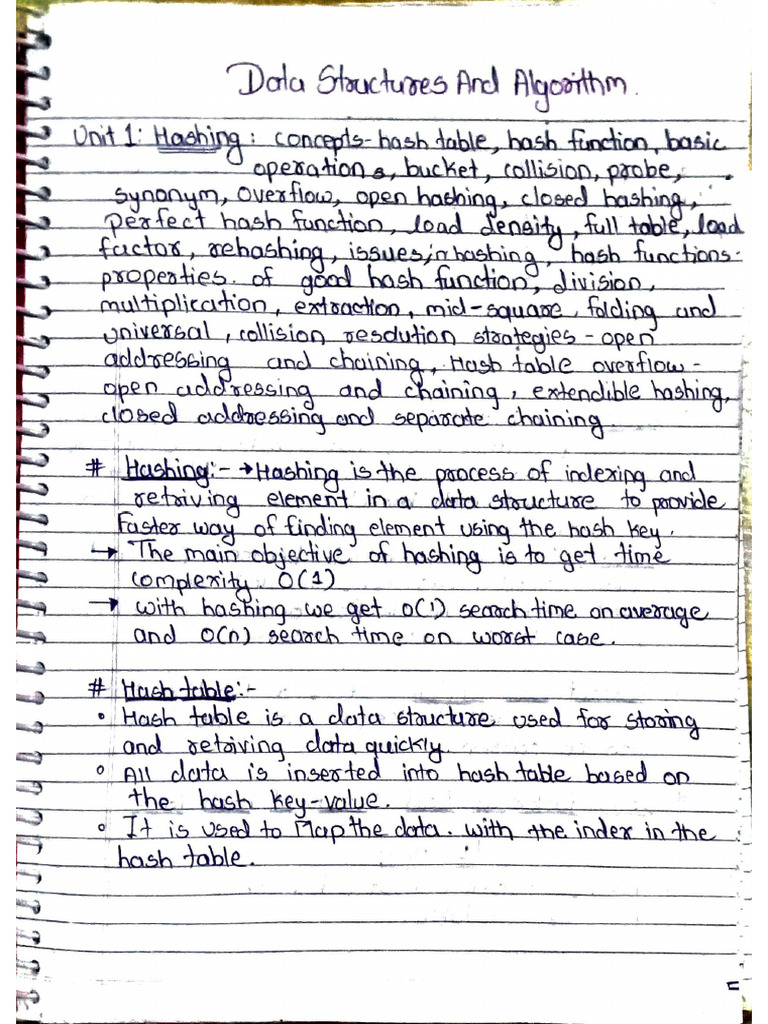 Data Structures And Algorithm.
Unit 1: Hashing: concepts-hash table, hash function, basic
operations, bucket, collision, probe,
synonym, overflow, open hashing, closed hashing,
perfect hash function, load density, full table, load
factor, rehashing, issues in hashing, hash functions-
properties of good hash function, division,
multiplication, extraction, mid-square, folding and
universal, collision resolution strategies - open
addressing and chaining, Hash table overflow -
open addressing and chaining, extendible hashing,
closed addressing and separate chaining.
# Hashing:- → Hashing is the process of indexing and
retriving element in a data structure to provide
faster way of finding element using the hash key.
→ The main objective of hashing is to get time
complexity O(1)
→ with hashing we get O(1) search time on average
and O(n) search time on worst case.
# Hash table:-
• Hash table is a data structure used for storing
and retriving data quickly.
• All data is inserted into hash table based on
the hash key-value.
• It is used to Map the data. with the index in the
hash table.